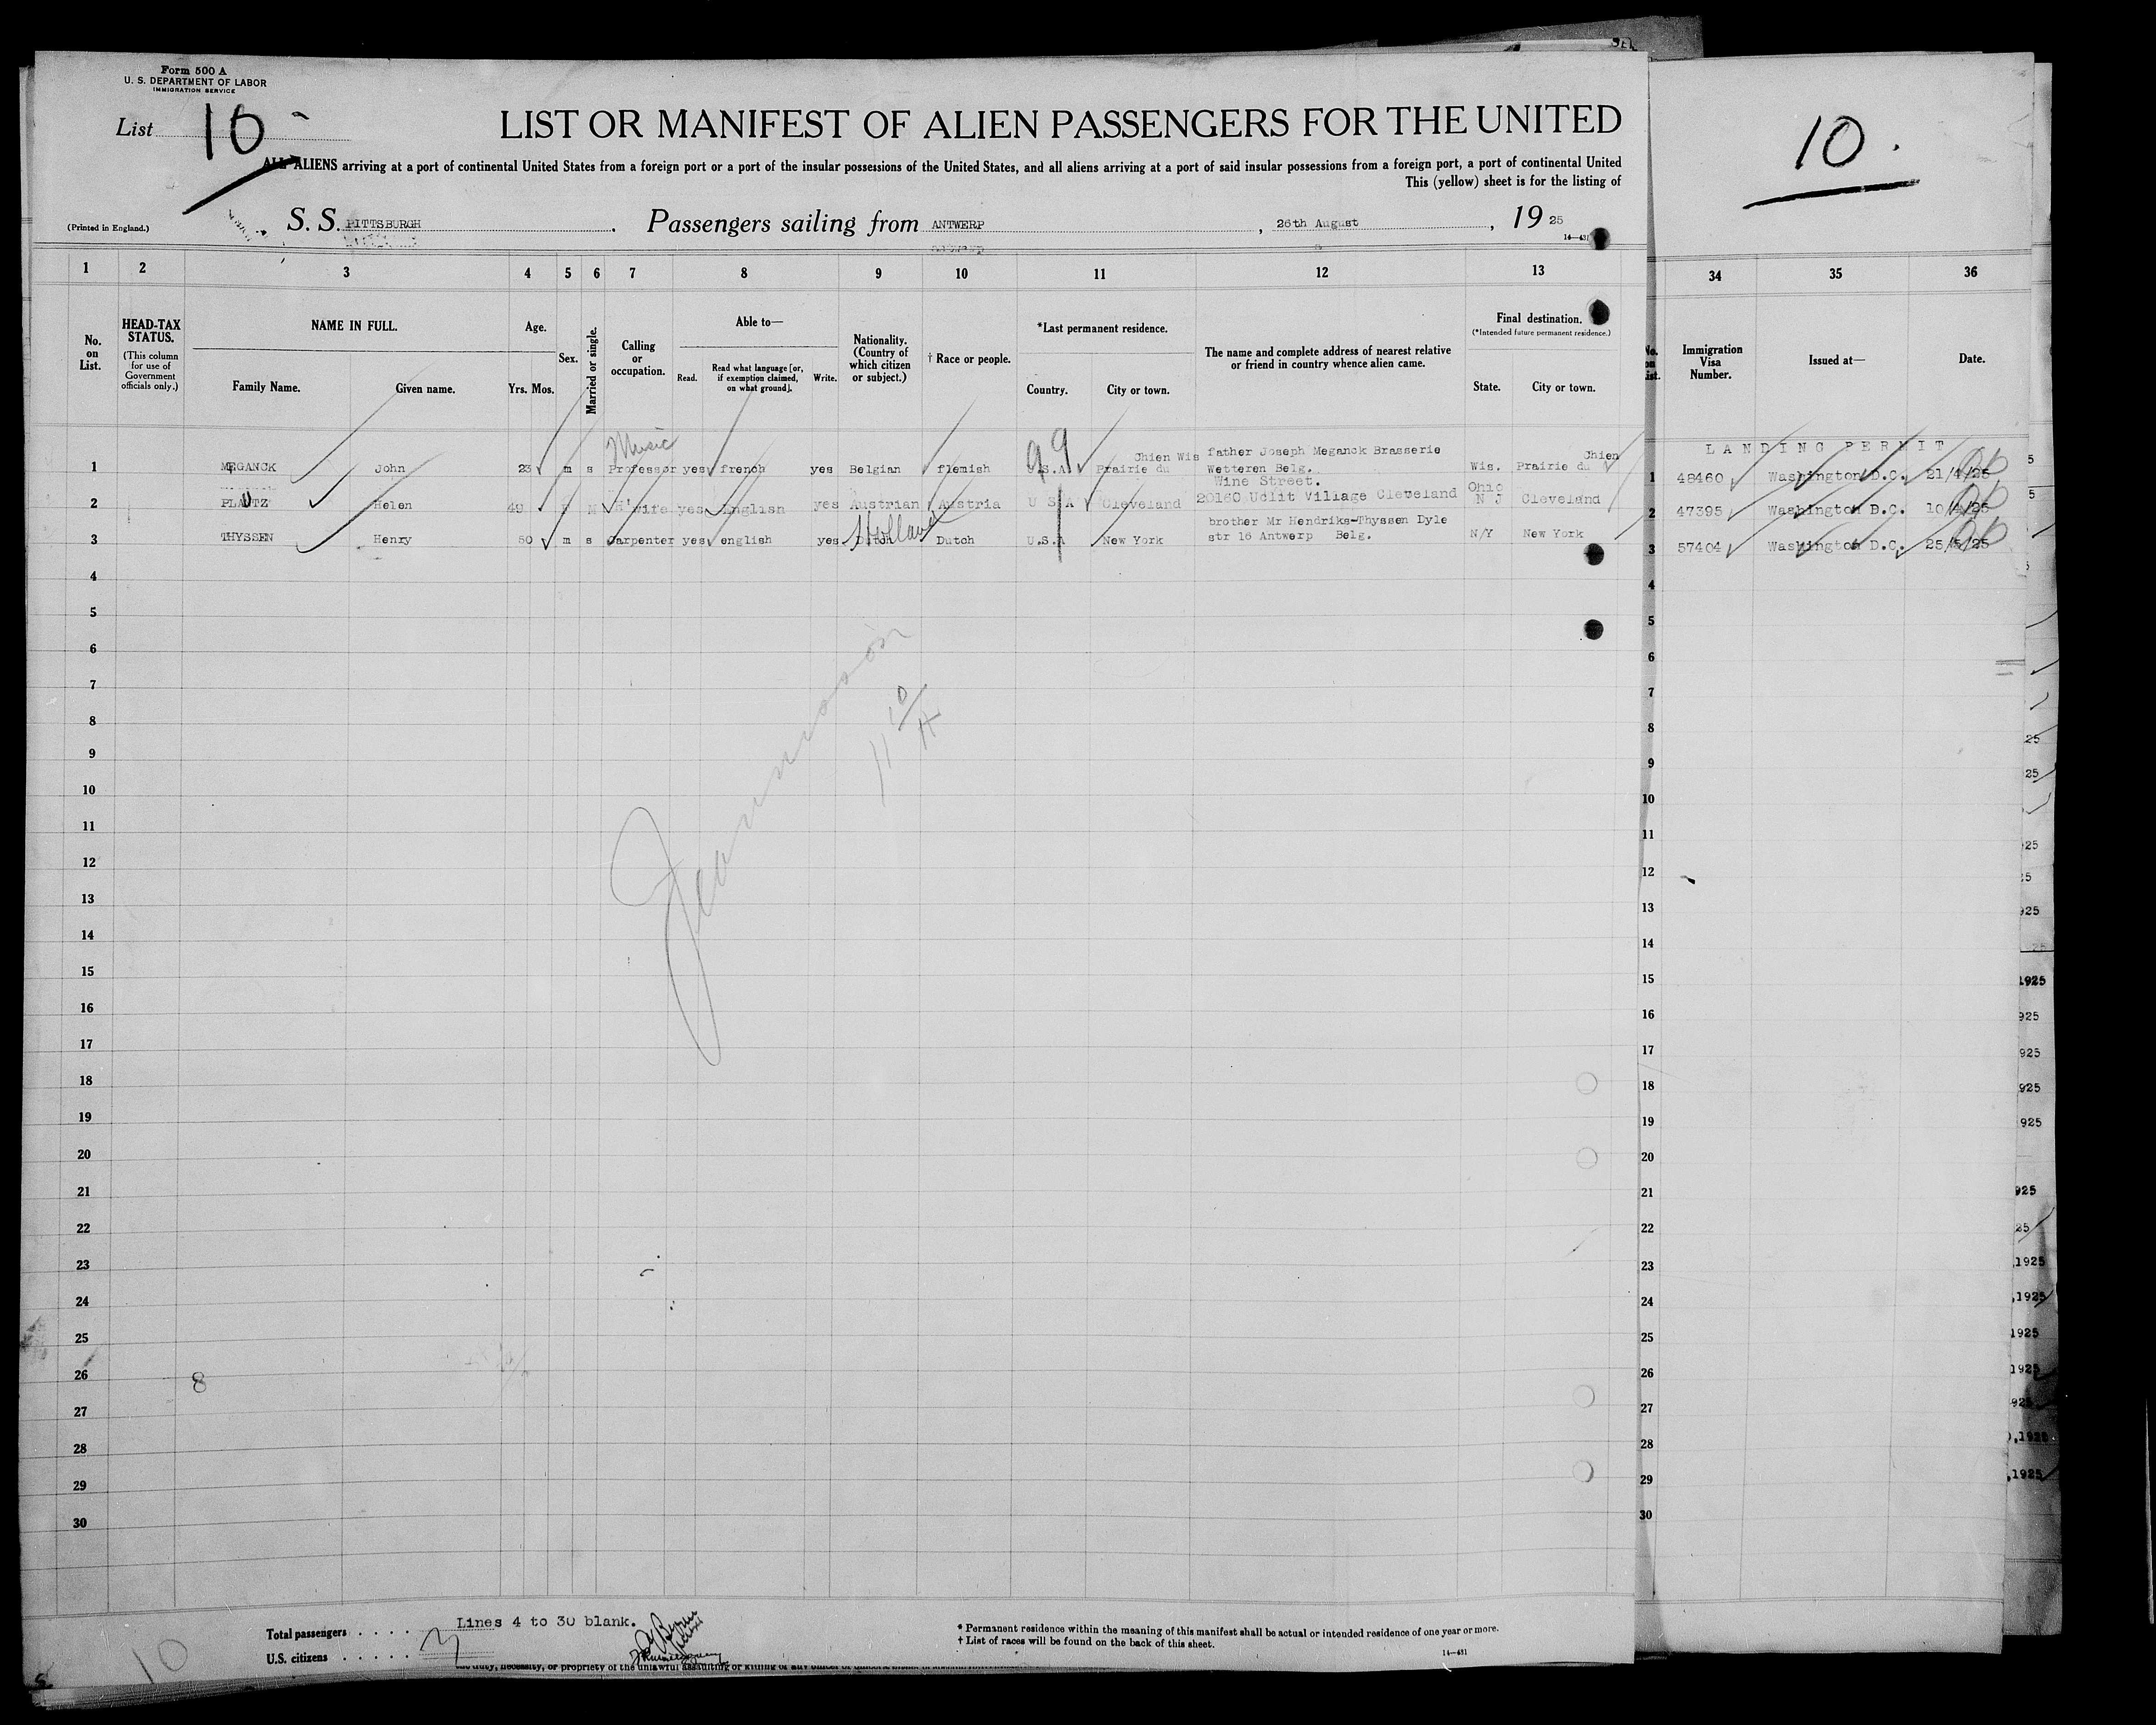 Form 500 A
U. S. DEPARTMENT OF LABOR
IMMIGRATION SERVICE
List 10
LIST OR MANIFEST OF ALIEN PASSENGERS FOR THE UNITED
10.
ALL ALIENS arriving at a port of continental United States from a foreign port or a port of the insular possessions of the United States, and all aliens arriving at a port of said insular possessions from a foreign port, a port of continental United
This (yellow) sheet is for the listing of
(Printed in England.)
S. S. PITTSBURGH. Passengers sailing from ANTWERP, 26th August, 1925
14—431
1 2 3 4 5 6 7 8 9 10 11 12 13 34 35 36
No. on List.
HEAD-TAX STATUS.
(This column for use of Government officials only.)
NAME IN FULL.
Family Name. Given name.
Age.
Yrs. Mos.
Sex.
Married or single.
Calling or occupation.
Able to—
Read. Read what language [or, if exemption claimed, on what ground]. Write.
Nationality. (Country of which citizen or subject.)
† Race or people.
*Last permanent residence.
Country. City or town.
The name and complete address of nearest relative or friend in country whence alien came.
Final destination.
(*Intended future permanent residence.)
State. City or town.
No. on List.
Immigration Visa Number.
Issued at—
Date.
LANDING PERMIT
Music
Chien Wis father Joseph Meganck Brasserie Chien
1 MEGANCK John 23 m s Professor yes french yes Belgian flemish U.S.A. Prairie du Wetteren Belg. Wis. Prairie du 1 48460 Washington D.C. 21/4/25
Wine Street. Ohio
2 PLAUTZ Helen 49 M H'wife yes English yes Austrian Austria U S A Cleveland 20160 Uclit Village Cleveland N J Cleveland 2 47395 Washington D.C. 10/4/25
Holland
brother Mr Hendriks-Thyssen Dyle
3 THYSSEN Henry 50 m s Carpenter yes english yes Dutch Dutch U.S.A New York str 16 Antwerp Belg. N/Y New York 3 57404 Washington D.C. 25/5/25
4 4
5 5
6 6
7 7
8 8
9 9
10 10
11 11
12 12
13 13
14 14
15 15
16 16
17 17
18 18
19 19
20 20
21 21
22 22
23 23
24 24
25 25
26 8 26
27 27
28 28
29 29
30 30
Lines 4 to 30 blank.
Total passengers . . . .
U.S. citizens . . . . .
3
10
* Permanent residence within the meaning of this manifest shall be actual or intended residence of one year or more.
† List of races will be found on the back of this sheet.
14—431